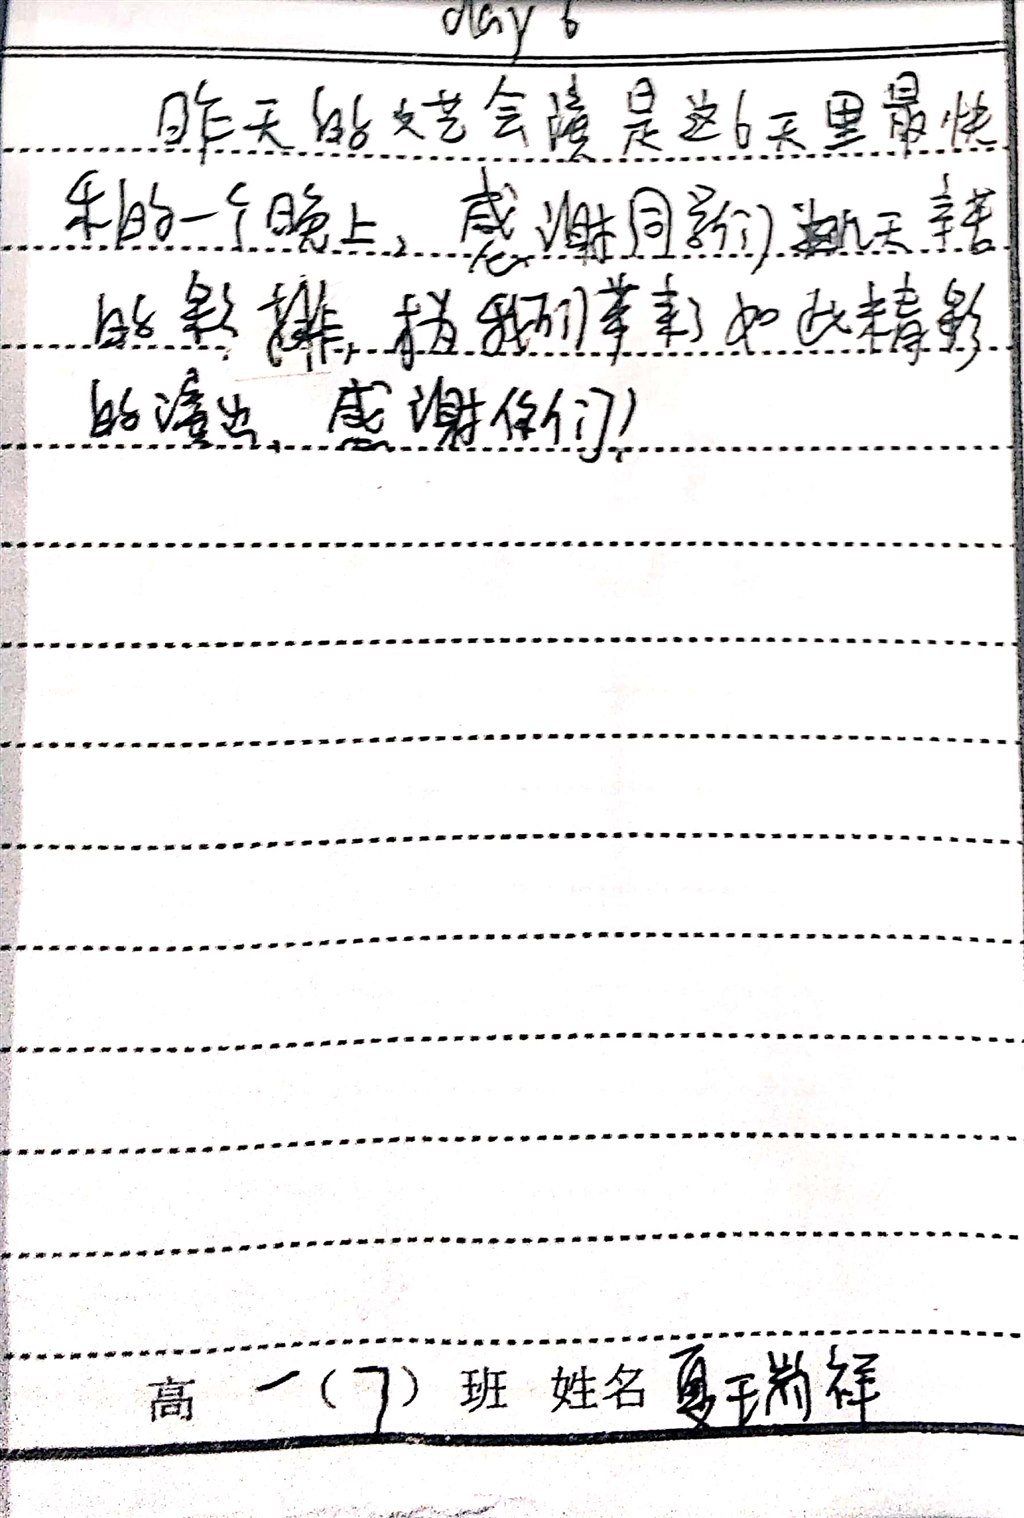 day 6
昨天的文艺会演是这6天里最快
乐的一个晚上，感谢同学们几天辛苦
的彩排，才为我们带来了如此精彩
的演出，感谢你们！
高一（7）班 姓名 夏玉祥